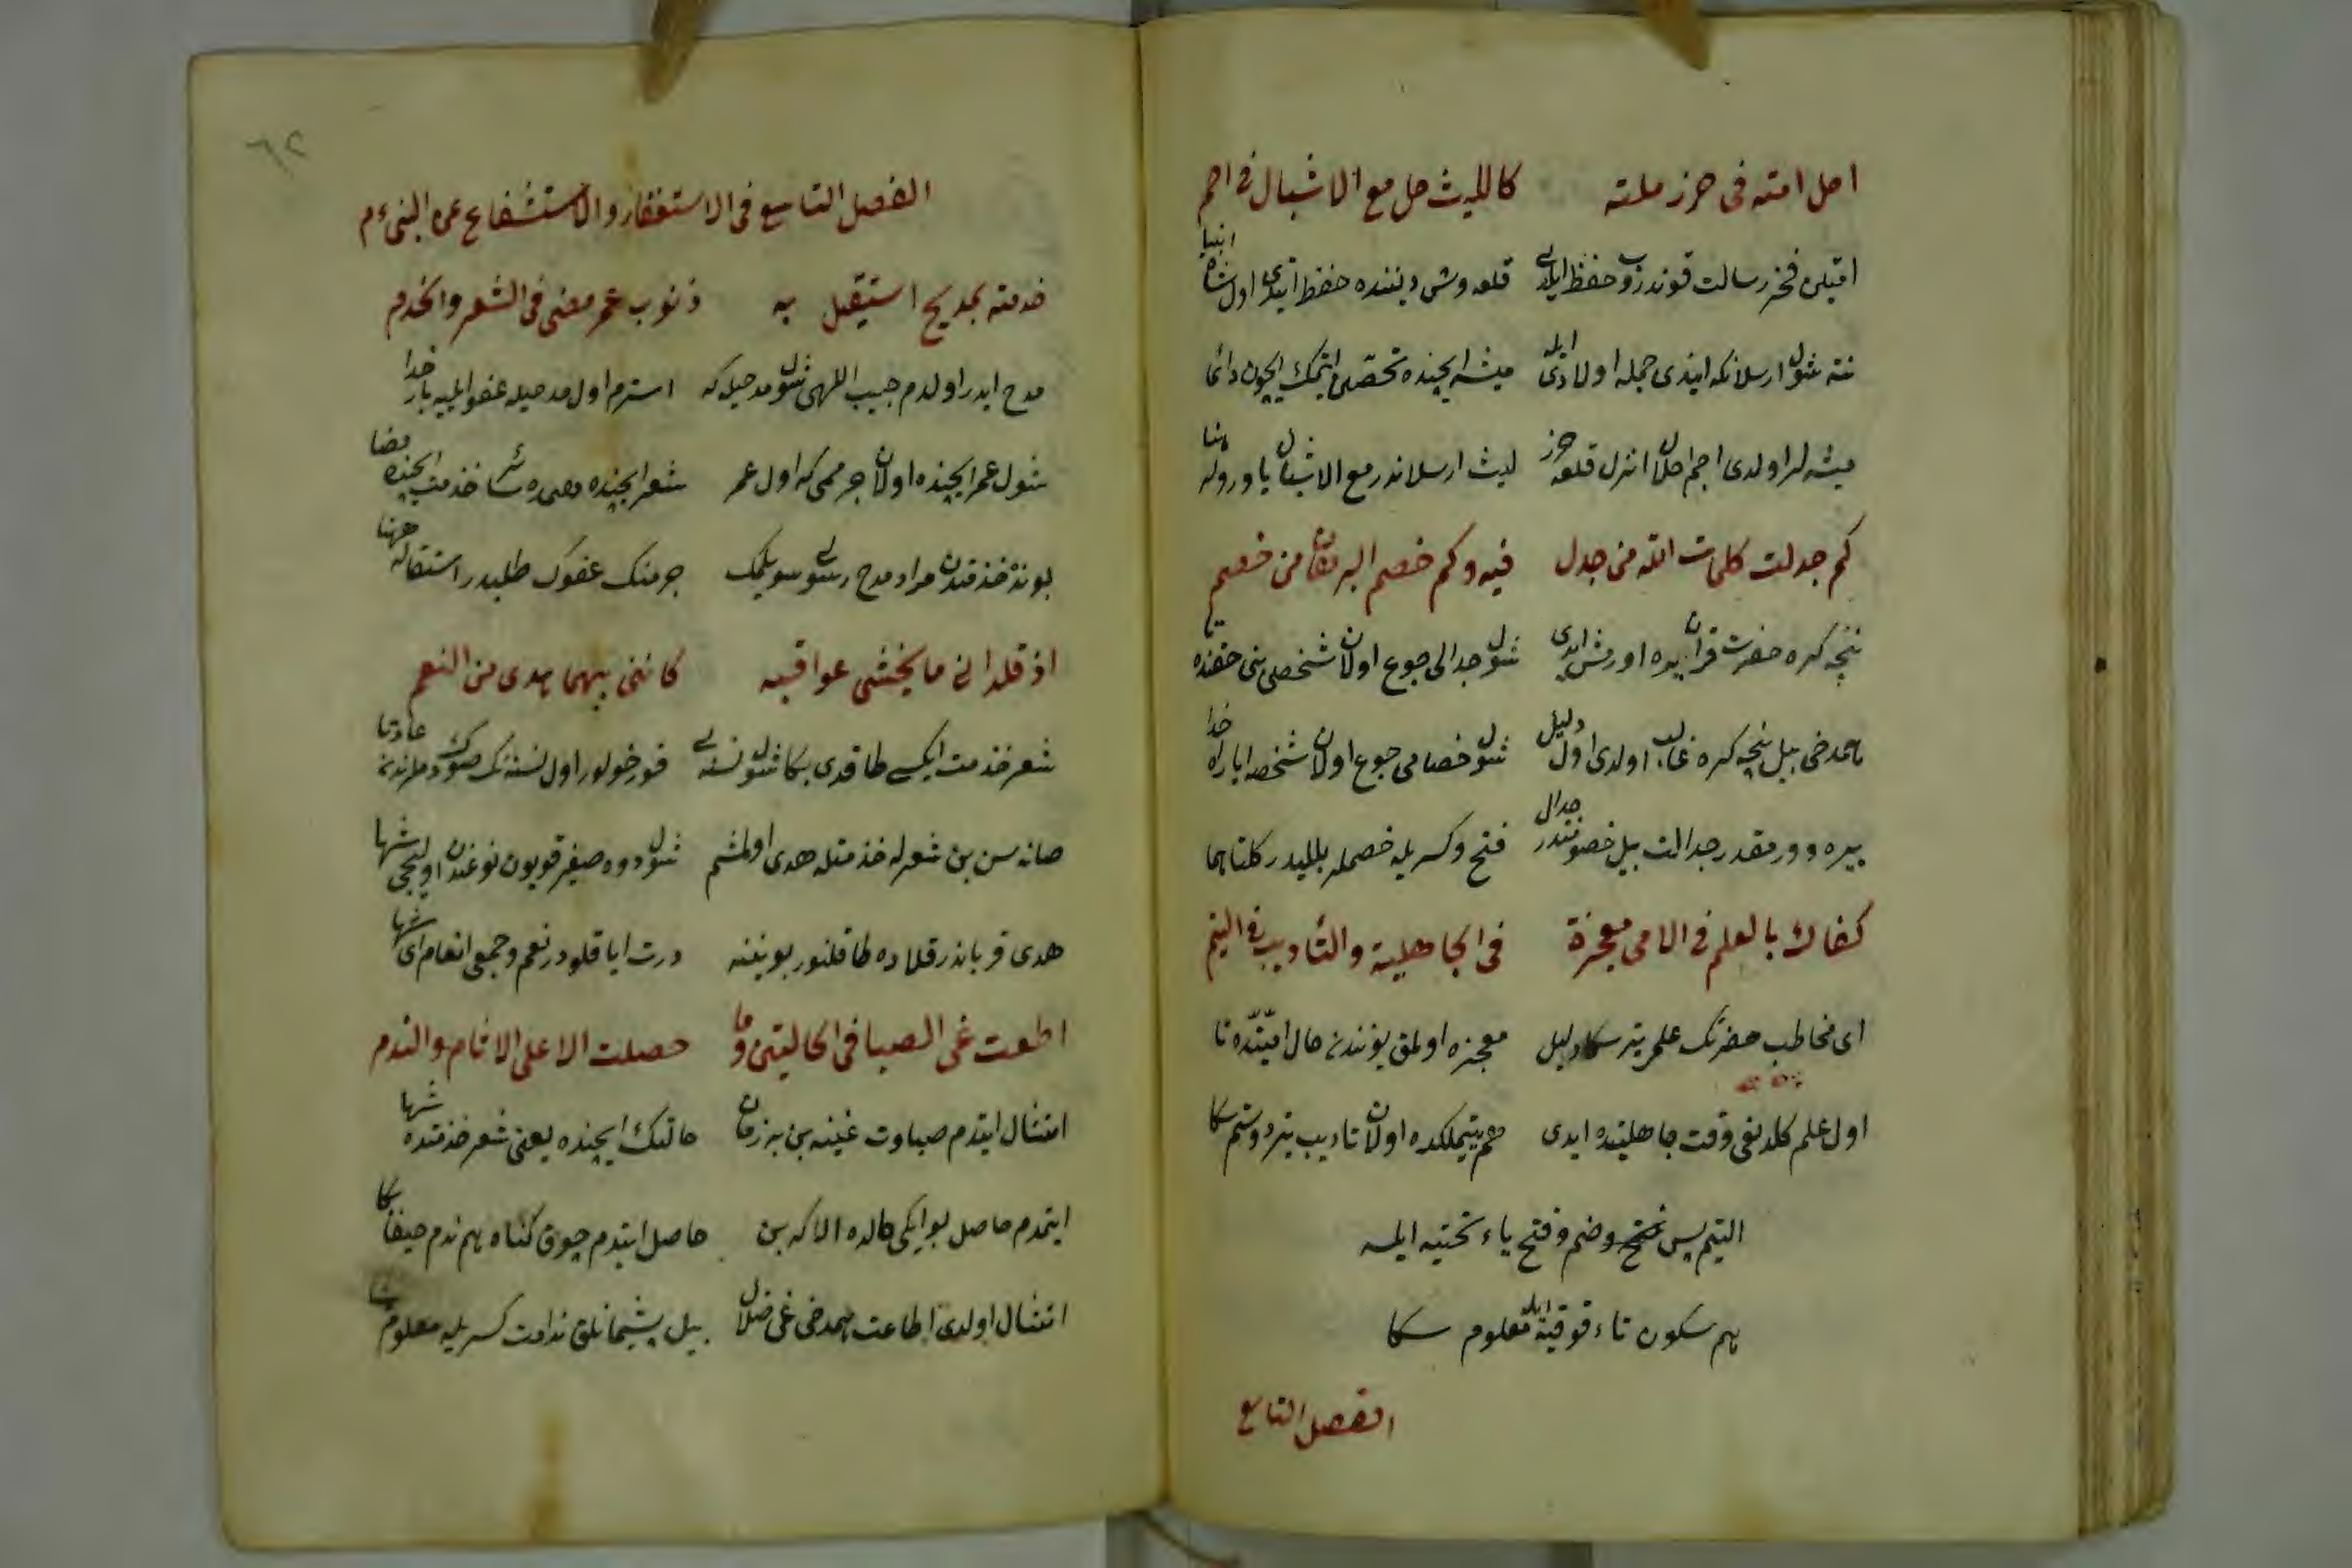 احل امته فى حرز ملته كالليث حل مع الاشبال فى اجم
امتیلن فخر رسالت قوندرۉب حفظ ایلدی قلعه وش دیننده حفظ ایتدی اول شاه انبیا
نته شول ارسلانکه ایندی جمله اولادی ایله میشه ایچنده تحصن ایتمک ایچون دائما
میشه لر اولدی اجم احلال انزل قلعه حرز لیث ارسلاندر مع الاشبال یاورولر
كم جدلت كلمات الله من جدل فيه وكم خصم البرهان من خصم
نیجه کره حضرت قران یره اورمش ایدی شول جدالی جوع اولان شخصی بنی حقنده
هم دخی بیل نیجه کره غالب اولدی اول دلیل شول خصامی جوع اولان شخصه ایاراه خدا
یره وورمقدر جدالت بیل خصومتدر جدال فتح وکسریله خصمله بللیدر کلتاهما
كفاك بالعلم فى الامى معجزة فى الجاهلية والتأديب فى اليتم
ای مخاطب حضرتک علمی یتر سکا دلیل معجزه اولمق یوزندن حال امیتده تا
اول علم کلدیغی وقت جاهلیتده ایدی هم یتیملکده اولان تادیب یتر دوستم سکا
الیتم پس ضم وفتح یاء تحتیه ایله
هم سکون تاء فوقیه ایله معلوم سکا
الفصل التاسع
٦٢
الفصل التاسع فى الاستغفار والاستشفاع عن النبى ءم
خدمته بمديح استقيل به ذنوب عمر مضى فى الشعر والخدم
مدح ایدر اولدم حبیب اللهی شول مدحیله که استرم اول مدحیله عفو ایلیه بار خدا
شول عمر ایچنده اولان جرممی که اول عمر شعر ایچنده خدمت ایچنده مضا
بونده خدمتدن مراد مدح رسولی سویلمک جرمنک عفوک طلبیدر استقاله ههنا
اذ قلدانى ما يخشى عواقبه كاننى بهما هدى من النعم
شعر خدمت ایکسی طاقدی بکا شول نسنه یی قورخولور اول نسنه نک صوکی عادتا
صانه سن بن شعرله خدمتله هدی اولمشم شول دوه صیغر قویون نوعندن اولیجی شها
هدی قرباندر قلاده طاقلنور بوینینه درت ایاقلودر نعم وجمعی انعام ای شها
اطعت غى الصبا فى الحالتين وما حصلت الا على الاثام والندم
امتثال ایتدم صباوت غینه بن بر زمان حالتک ایچنده یعنی شعر خدمتده شها
ایتمدم حاصل بو ایکی حالده الا که بن حاصل ایتدم چوق کناه هم ندم حیفا بکا
امتثال اولدی اطاعت هم دخی غی ضلال بیل پشیمانلق ندامت کسریله معلوم